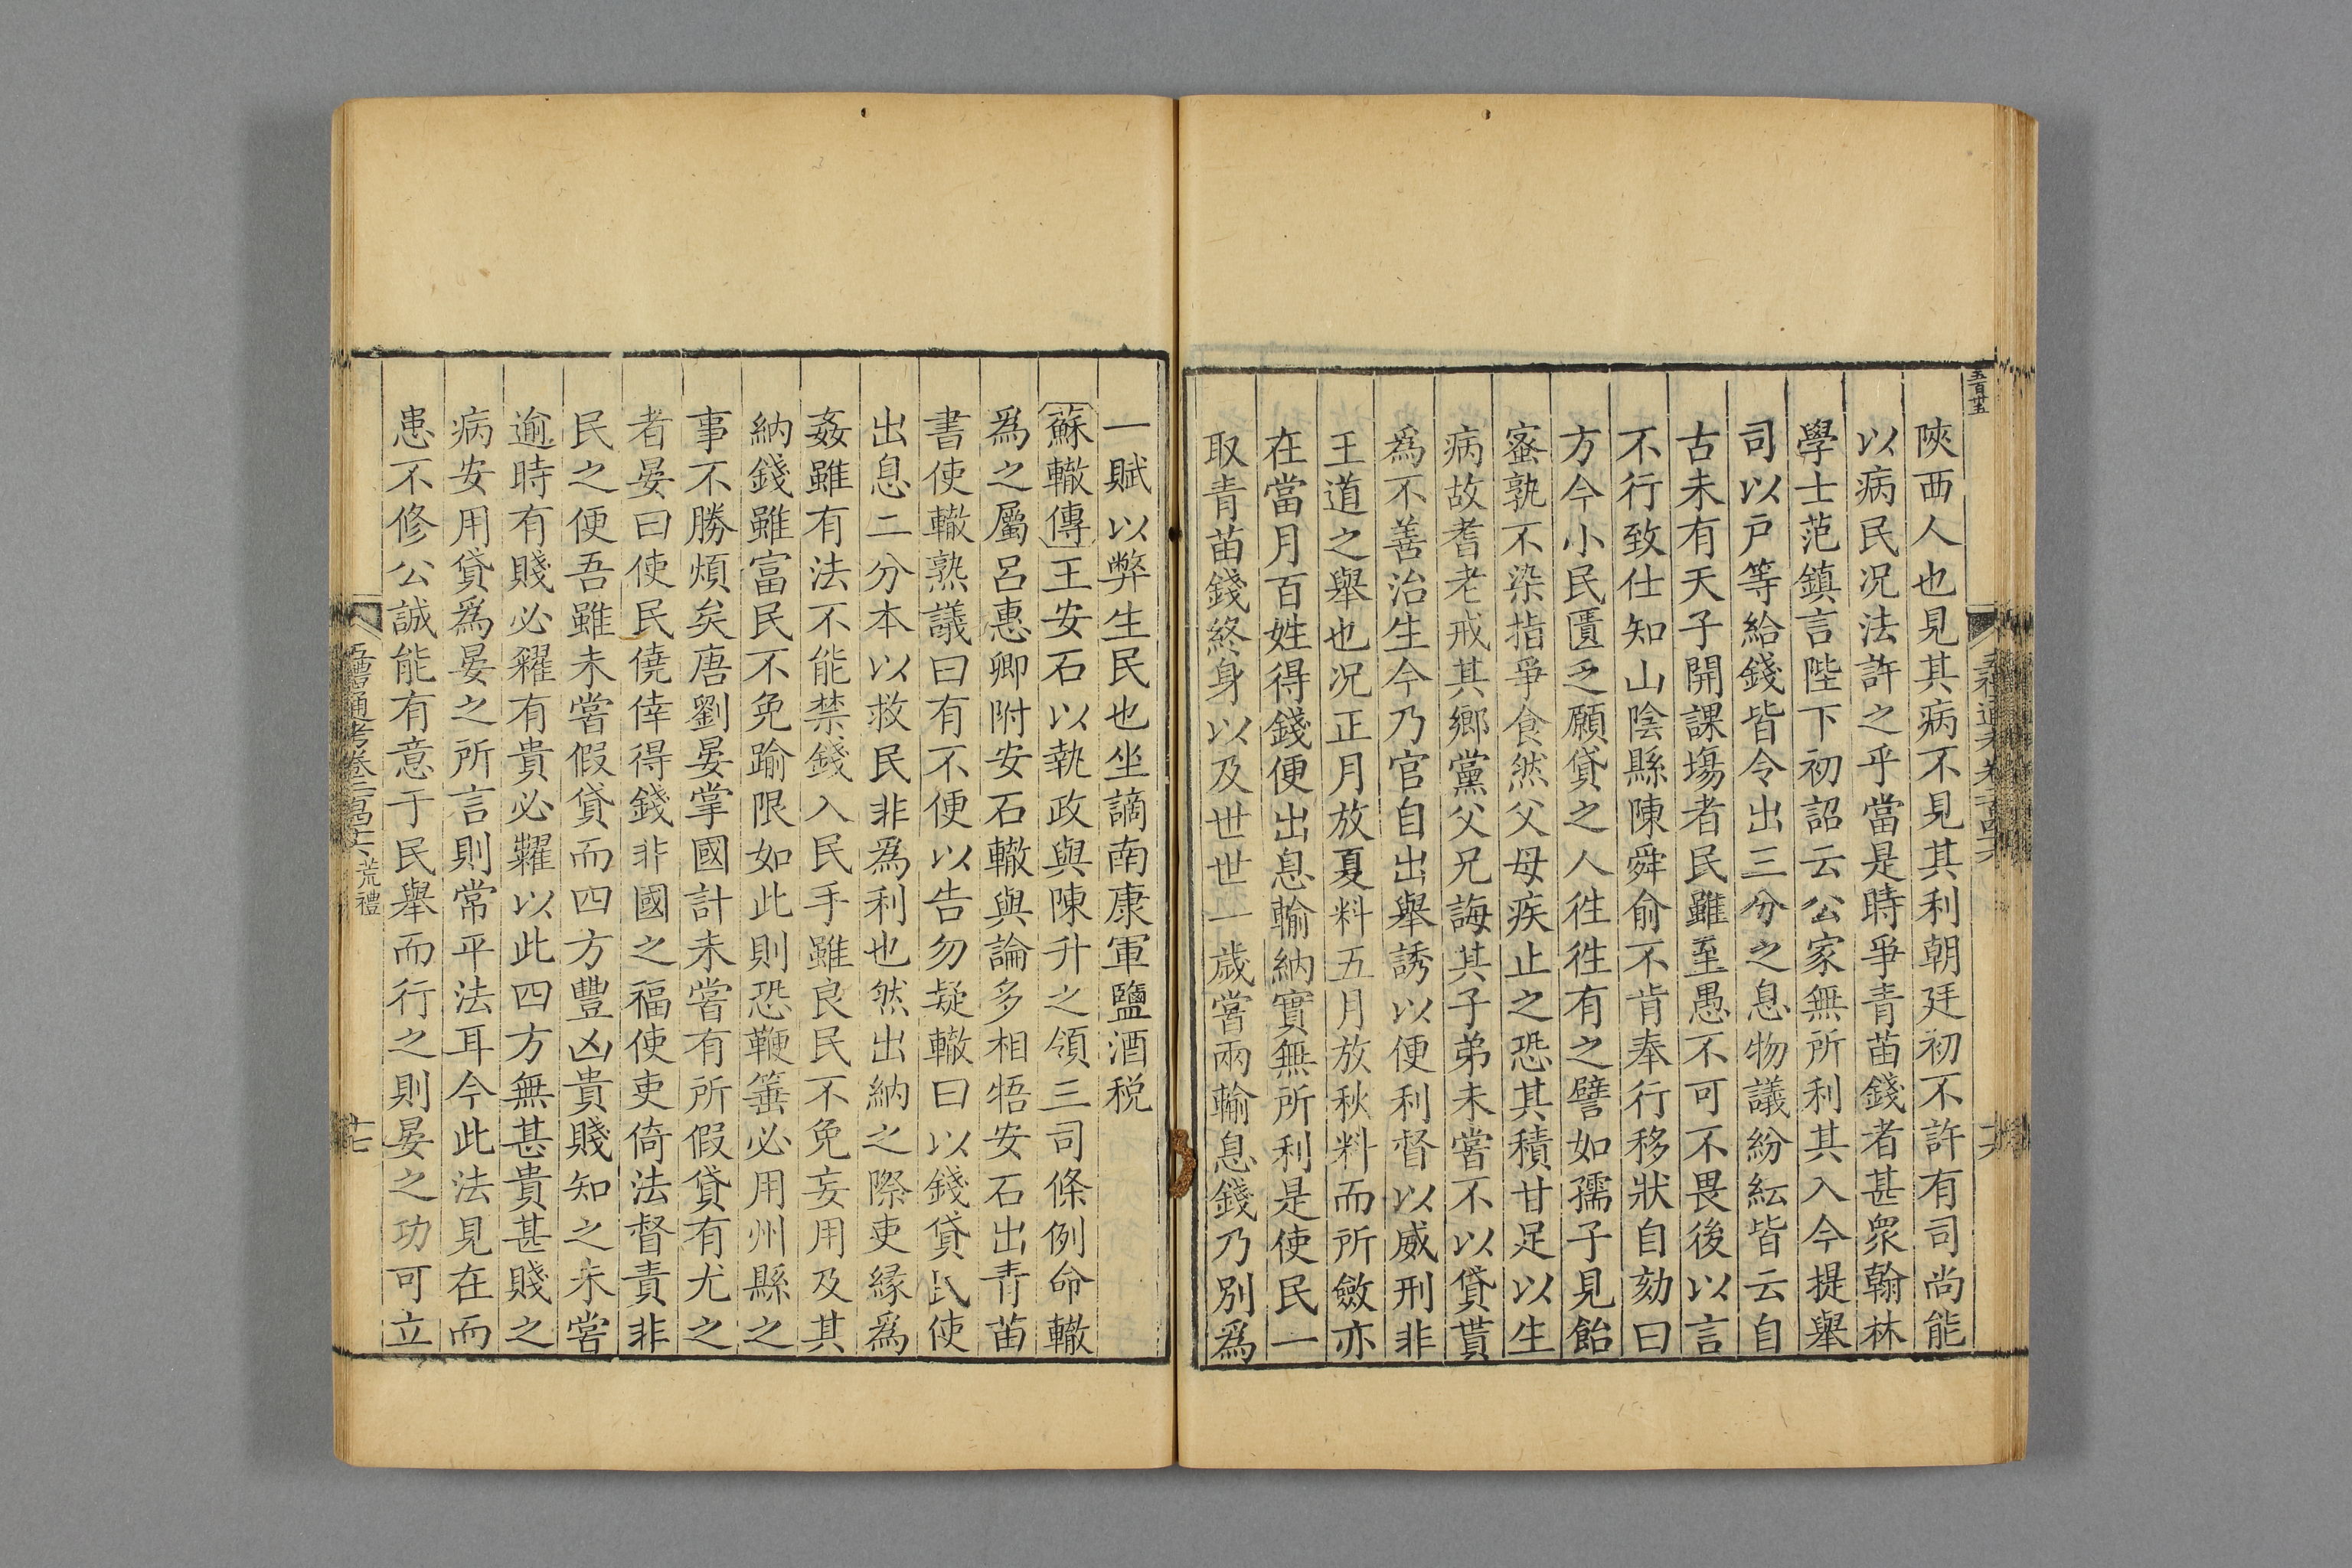 五百廿五
陝西人也見其病不見其利朝廷初不許有司尚能
以病民况法許之乎當是時爭青苗錢者甚衆翰林
學士范鎮言陛下初詔云公家無所利其入今提舉
司以戸等給錢皆令出三分之息物議紛紜皆云自
古未有天子開課塲者民雖至愚不可不畏後以言
不行致仕知山陰縣陳舜俞不肯奉行移狀自劾曰
方今小民匱乏願貸之人徃徃有之譬如孺子見飴
蜜孰不染指爭食然父母疾止之恐其積甘足以生
病故耆老戒其鄉黨父兄誨其子弟未嘗不以貸貰
爲不善治生今乃官自出舉誘以便利督以威刑非
王道之舉也况正月放夏料五月放秋料而所斂亦
在當月百姓得錢便出息輸納實無所利是使民一
取青苗錢終身以及世世一歲嘗兩輸息錢乃別爲
一賦以弊生民也坐謫南康軍鹽酒税
蘇轍傳王安石以執政與陳升之領三司條例命轍
爲之屬呂惠卿附安石轍與論多相牾安石出青苗
書使轍熟議曰有不便以告勿疑轍曰以錢貸民使
出息二分本以救民非爲利也然出納之際吏緣爲
姦雖有法不能禁錢入民手雖良民不免妄用及其
納錢雖富民不免踰限如此則恐鞭箠必用州縣之
事不勝煩矣唐劉晏掌國計未嘗有所假貸有尤之
者晏曰使民僥倖得錢非國之福使吏倚法督責非
民之便吾雖未嘗假貸而四方豐凶貴賤知之未嘗
逾時有賤必糴有貴必糶以此四方無甚貴甚賤之
病安用貸爲晏之所言則常平法耳今此法見在而
患不修公誠能有意于民舉而行之則晏之功可立
五禮通考卷二百四十六 荒禮
十七